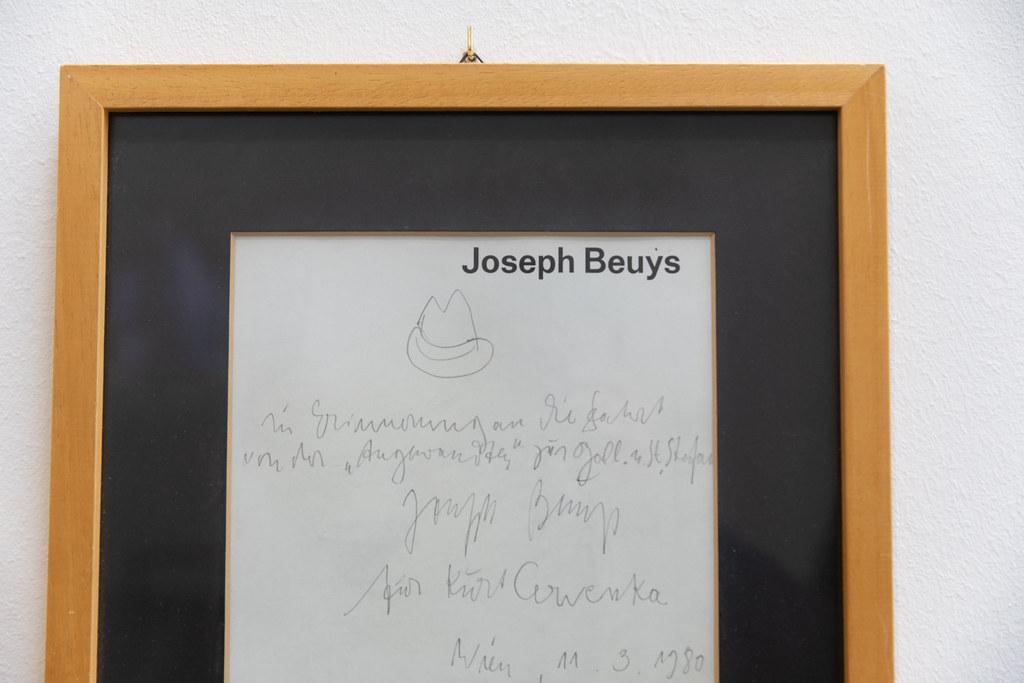 Joseph Beuys
in Erinnerung an die Fahrt
von der „Angewandten" zur Gall. n. St. Stefan
Joseph Beuys
für Kurt Cervenka
Wien, 11. 3. 1980